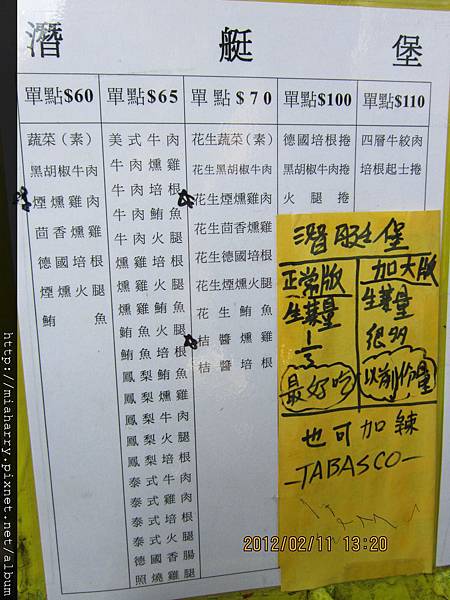 潛艇堡
單點$60
蔬菜(素)
黑胡椒牛肉
煙燻雞肉
茴香燻雞
德國培根
煙燻火腿
鮪魚
單點$65
美式牛肉
牛肉燻雞
牛肉培根
牛肉鮪魚
牛肉火腿
燻雞培根
燻雞火腿
燻雞鮪魚
鮪魚火腿
鮪魚培根
鳳梨鮪魚
鳳梨燻雞
鳳梨牛肉
鳳梨火腿
鳳梨培根
泰式牛肉
泰式雞肉
泰式培根
泰式火腿
德國香腸
照燒雞腿
單點$70
花生蔬菜(素)
花生黑胡椒牛肉
花生煙燻雞肉
花生茴香燻雞
花生德國培根
花生煙燻火腿
花生鮪魚
桔醬燻雞
桔醬培根
單點$100
德國培根捲
黑胡椒牛肉捲
火腿捲
單點$110
四層牛絞肉
培根起士捲
潛艇堡
正常版
生菜量
1/3
最好吃
加大版
生菜量
很多
以前份量
也可加辣
-TABASCO-
2012/02/11 13:20
http://miaharry.pixnet.net/album